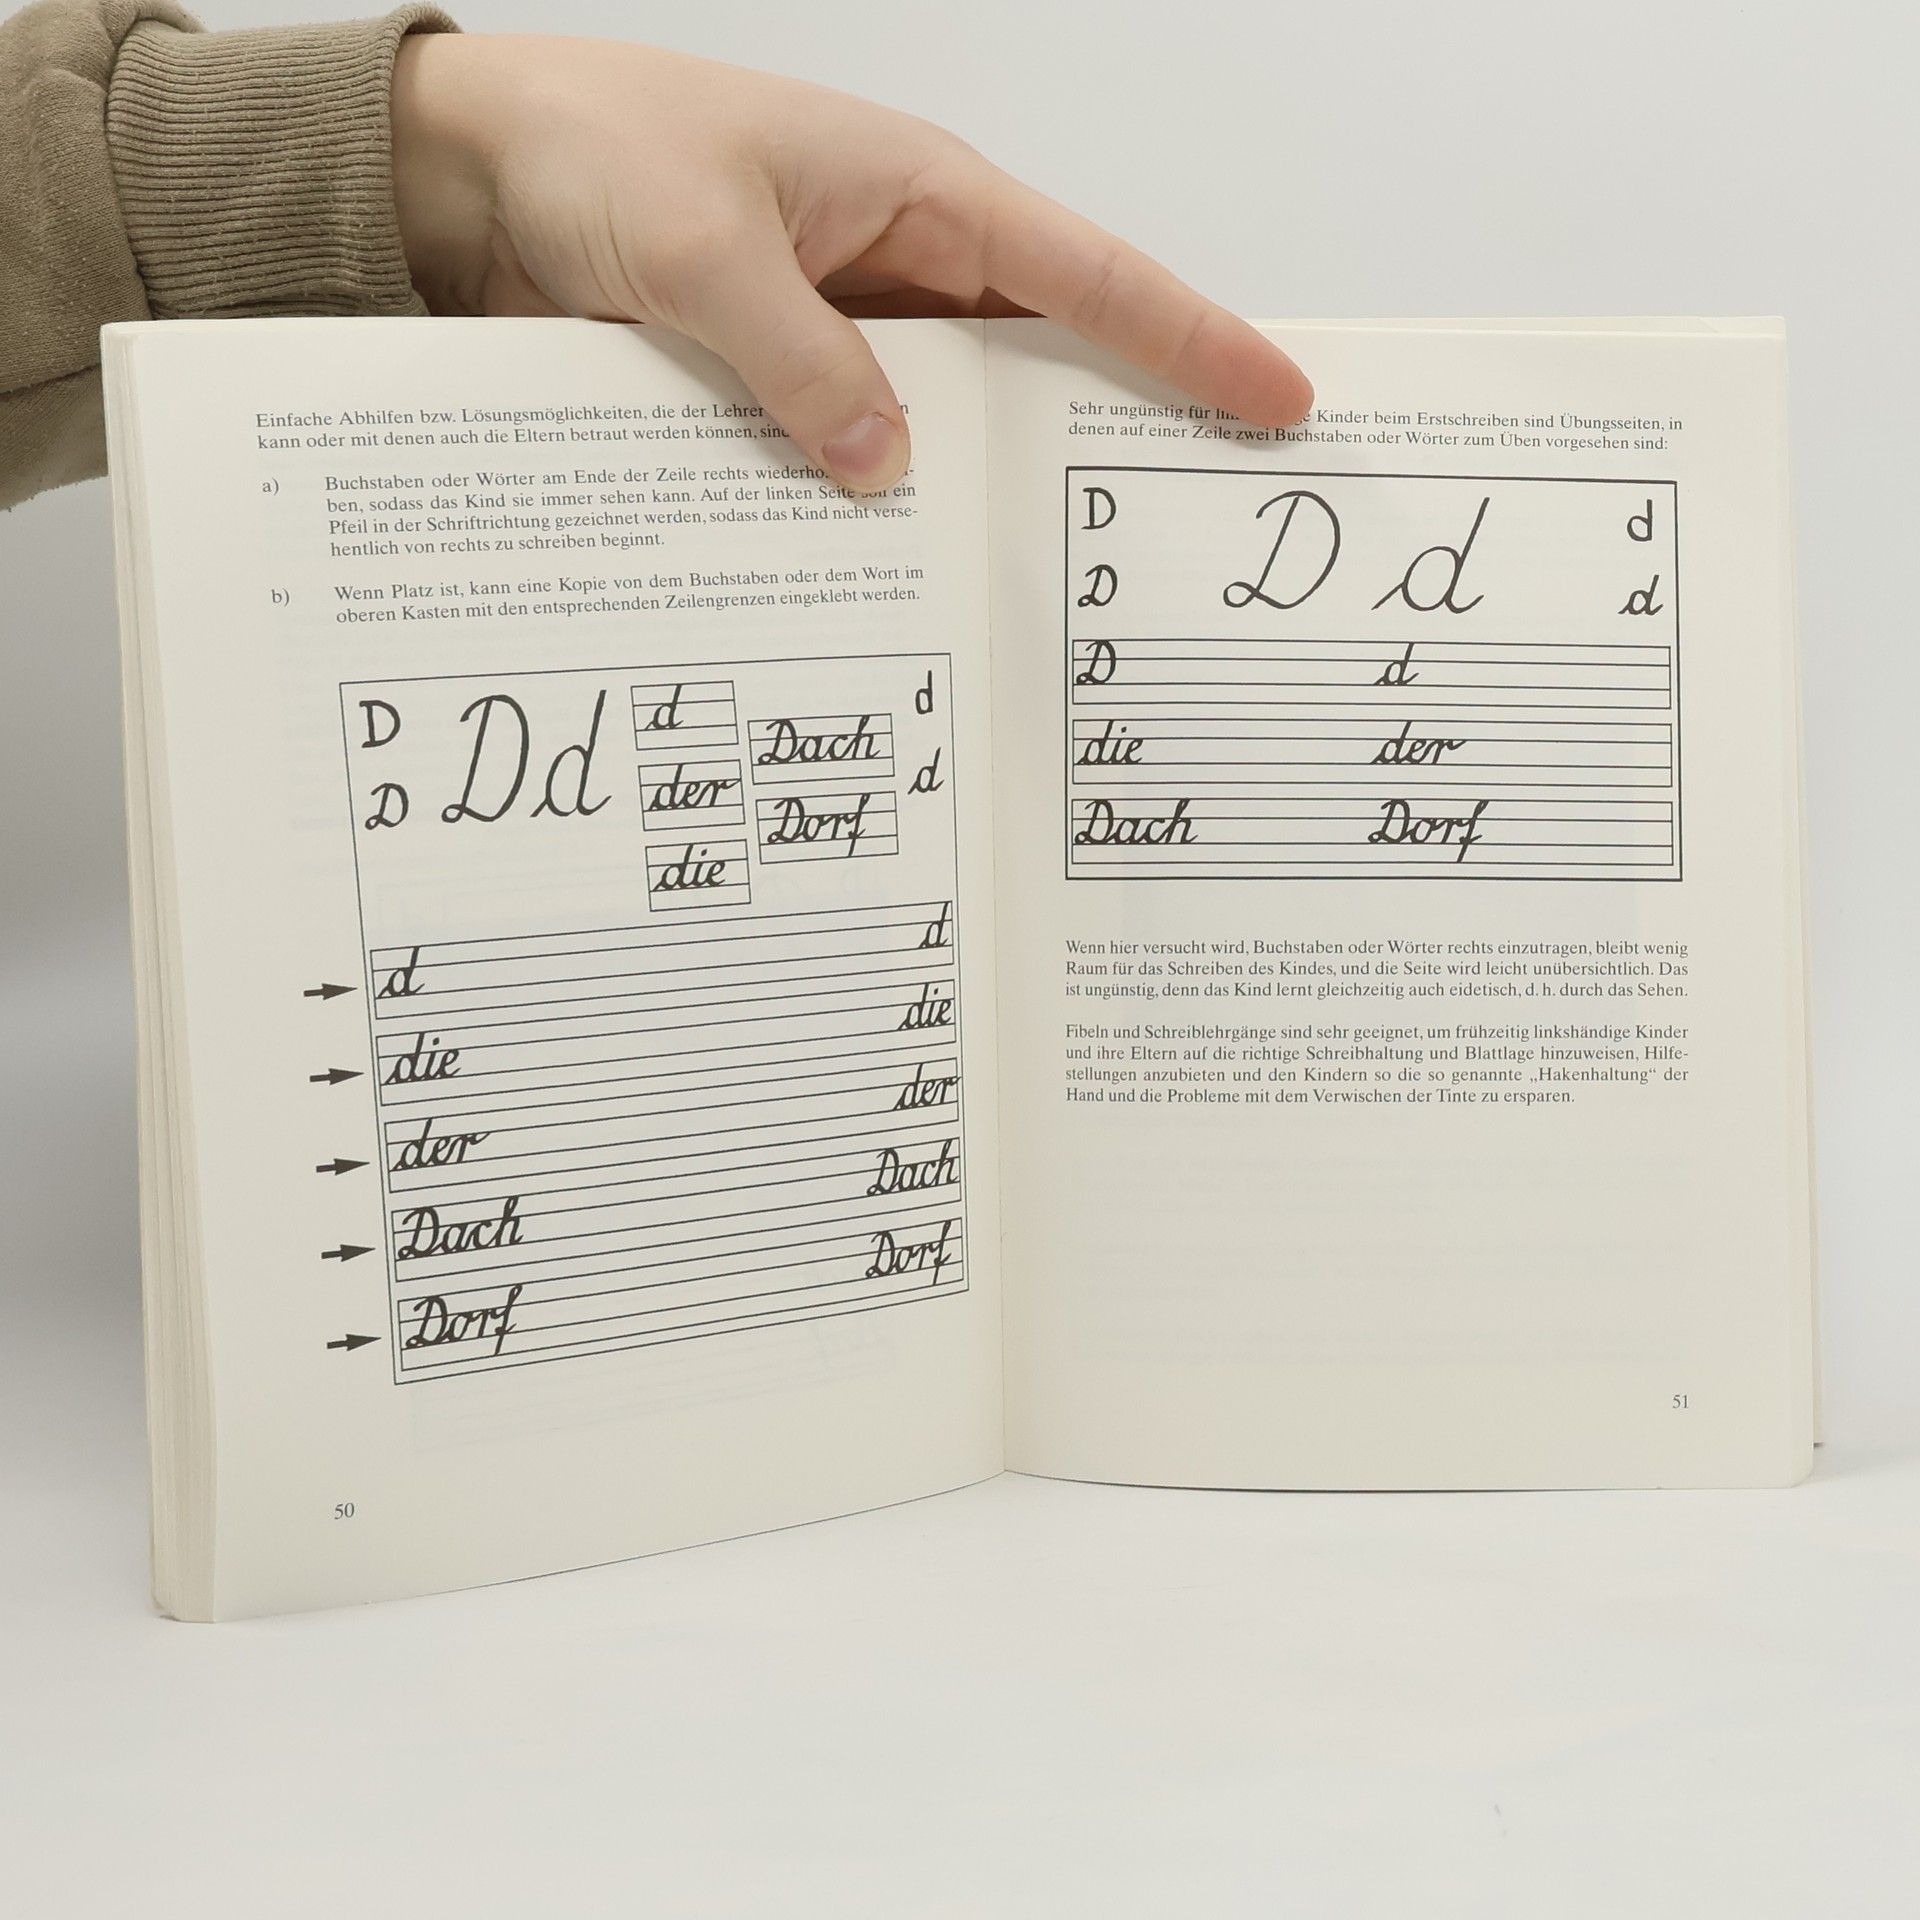 Einfache Abhilfen bzw. Lösungsmöglichkeiten, die der Lehrer
kann oder mit denen auch die Eltern betraut werden können,
a) Buchstaben oder Wörter am Ende der Zeile rechts
ben, sodass das Kind sie immer sehen kann. Auf der linken Seite soll ein
Pfeil in der Schriftrichtung gezeichnet werden, sodass das Kind nicht verse-
hentlich von rechts zu schreiben beginnt.
b) Wenn Platz ist, kann eine Kopie von dem Buchstaben oder dem Wort im
oberen Kasten mit den entsprechenden Zeilengrenzen eingeklebt werden.
D D d d d
Dach
D der d
Dorf
die
d d
die die
der der
Dach Dach
Dorf Dorf
50
Sehr ungünstig für Kinder beim Erstschreiben sind Übungsseiten, in
denen auf einer Zeile zwei Buchstaben oder Wörter zum Üben vorgesehen sind:
D D d d
D d
D d
die der
Dach Dorf
Wenn hier versucht wird, Buchstaben oder Wörter rechts einzutragen, bleibt wenig
Raum für das Schreiben des Kindes, und die Seite wird leicht unübersichtlich. Das
ist ungünstig, denn das Kind lernt gleichzeitig auch eidetisch, d. h. durch das Sehen.
Fibeln und Schreiblehrgänge sind sehr geeignet, um frühzeitig linkshändige Kinder
und ihre Eltern auf die richtige Schreibhaltung und Blattlage hinzuweisen, Hilfe-
stellungen anzubieten und den Kindern so die so genannte „Hakenhaltung“ der
Hand und die Probleme mit dem Verwischen der Tinte zu ersparen.
51